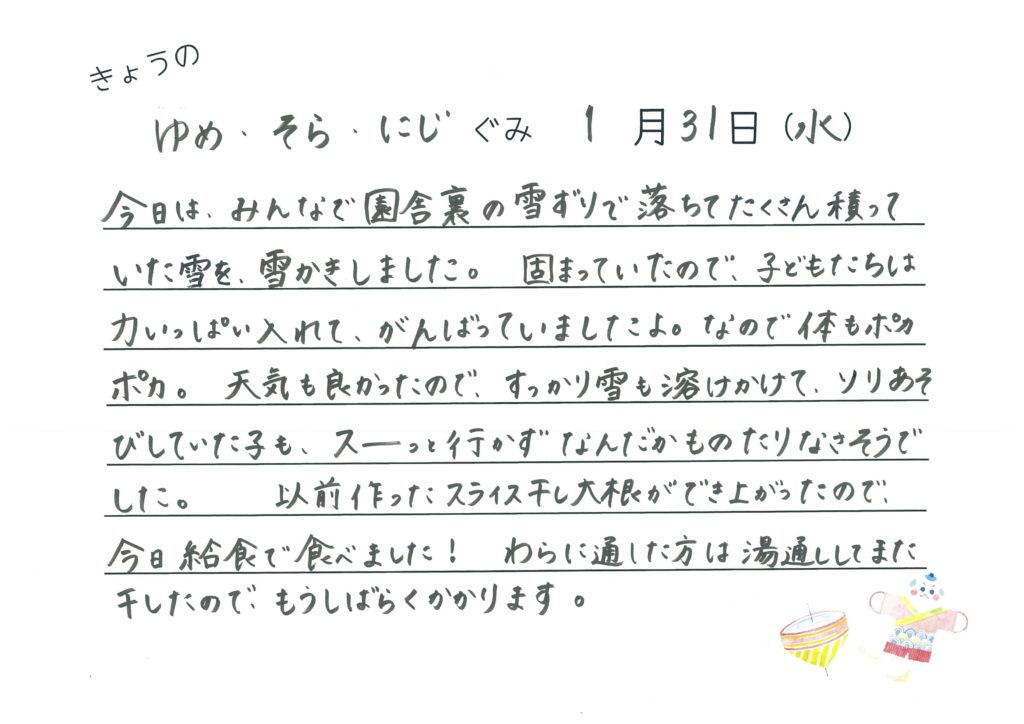 きょうの
ゆめ・そら・にじ ぐみ 1月31日(水)
今日は、みんなで園舎裏の雪ずりで落ちてたくさん積って
いた雪を、雪かきしました。 固まっていたので、子どもたちは
力いっぱい入れて、がんばっていましたよ。なので体もポカ
ポカ。 天気も良かったので、すっかり雪も溶けかけて、ソリあそ
びしていた子も、スーーっと行かずなんだかものたりなさそうで
した。 以前作ったスライス干し大根ができ上がったので、
今日給食で食べました! わらに通した方は湯通ししてまた
干したので、もうしばらくかかります。